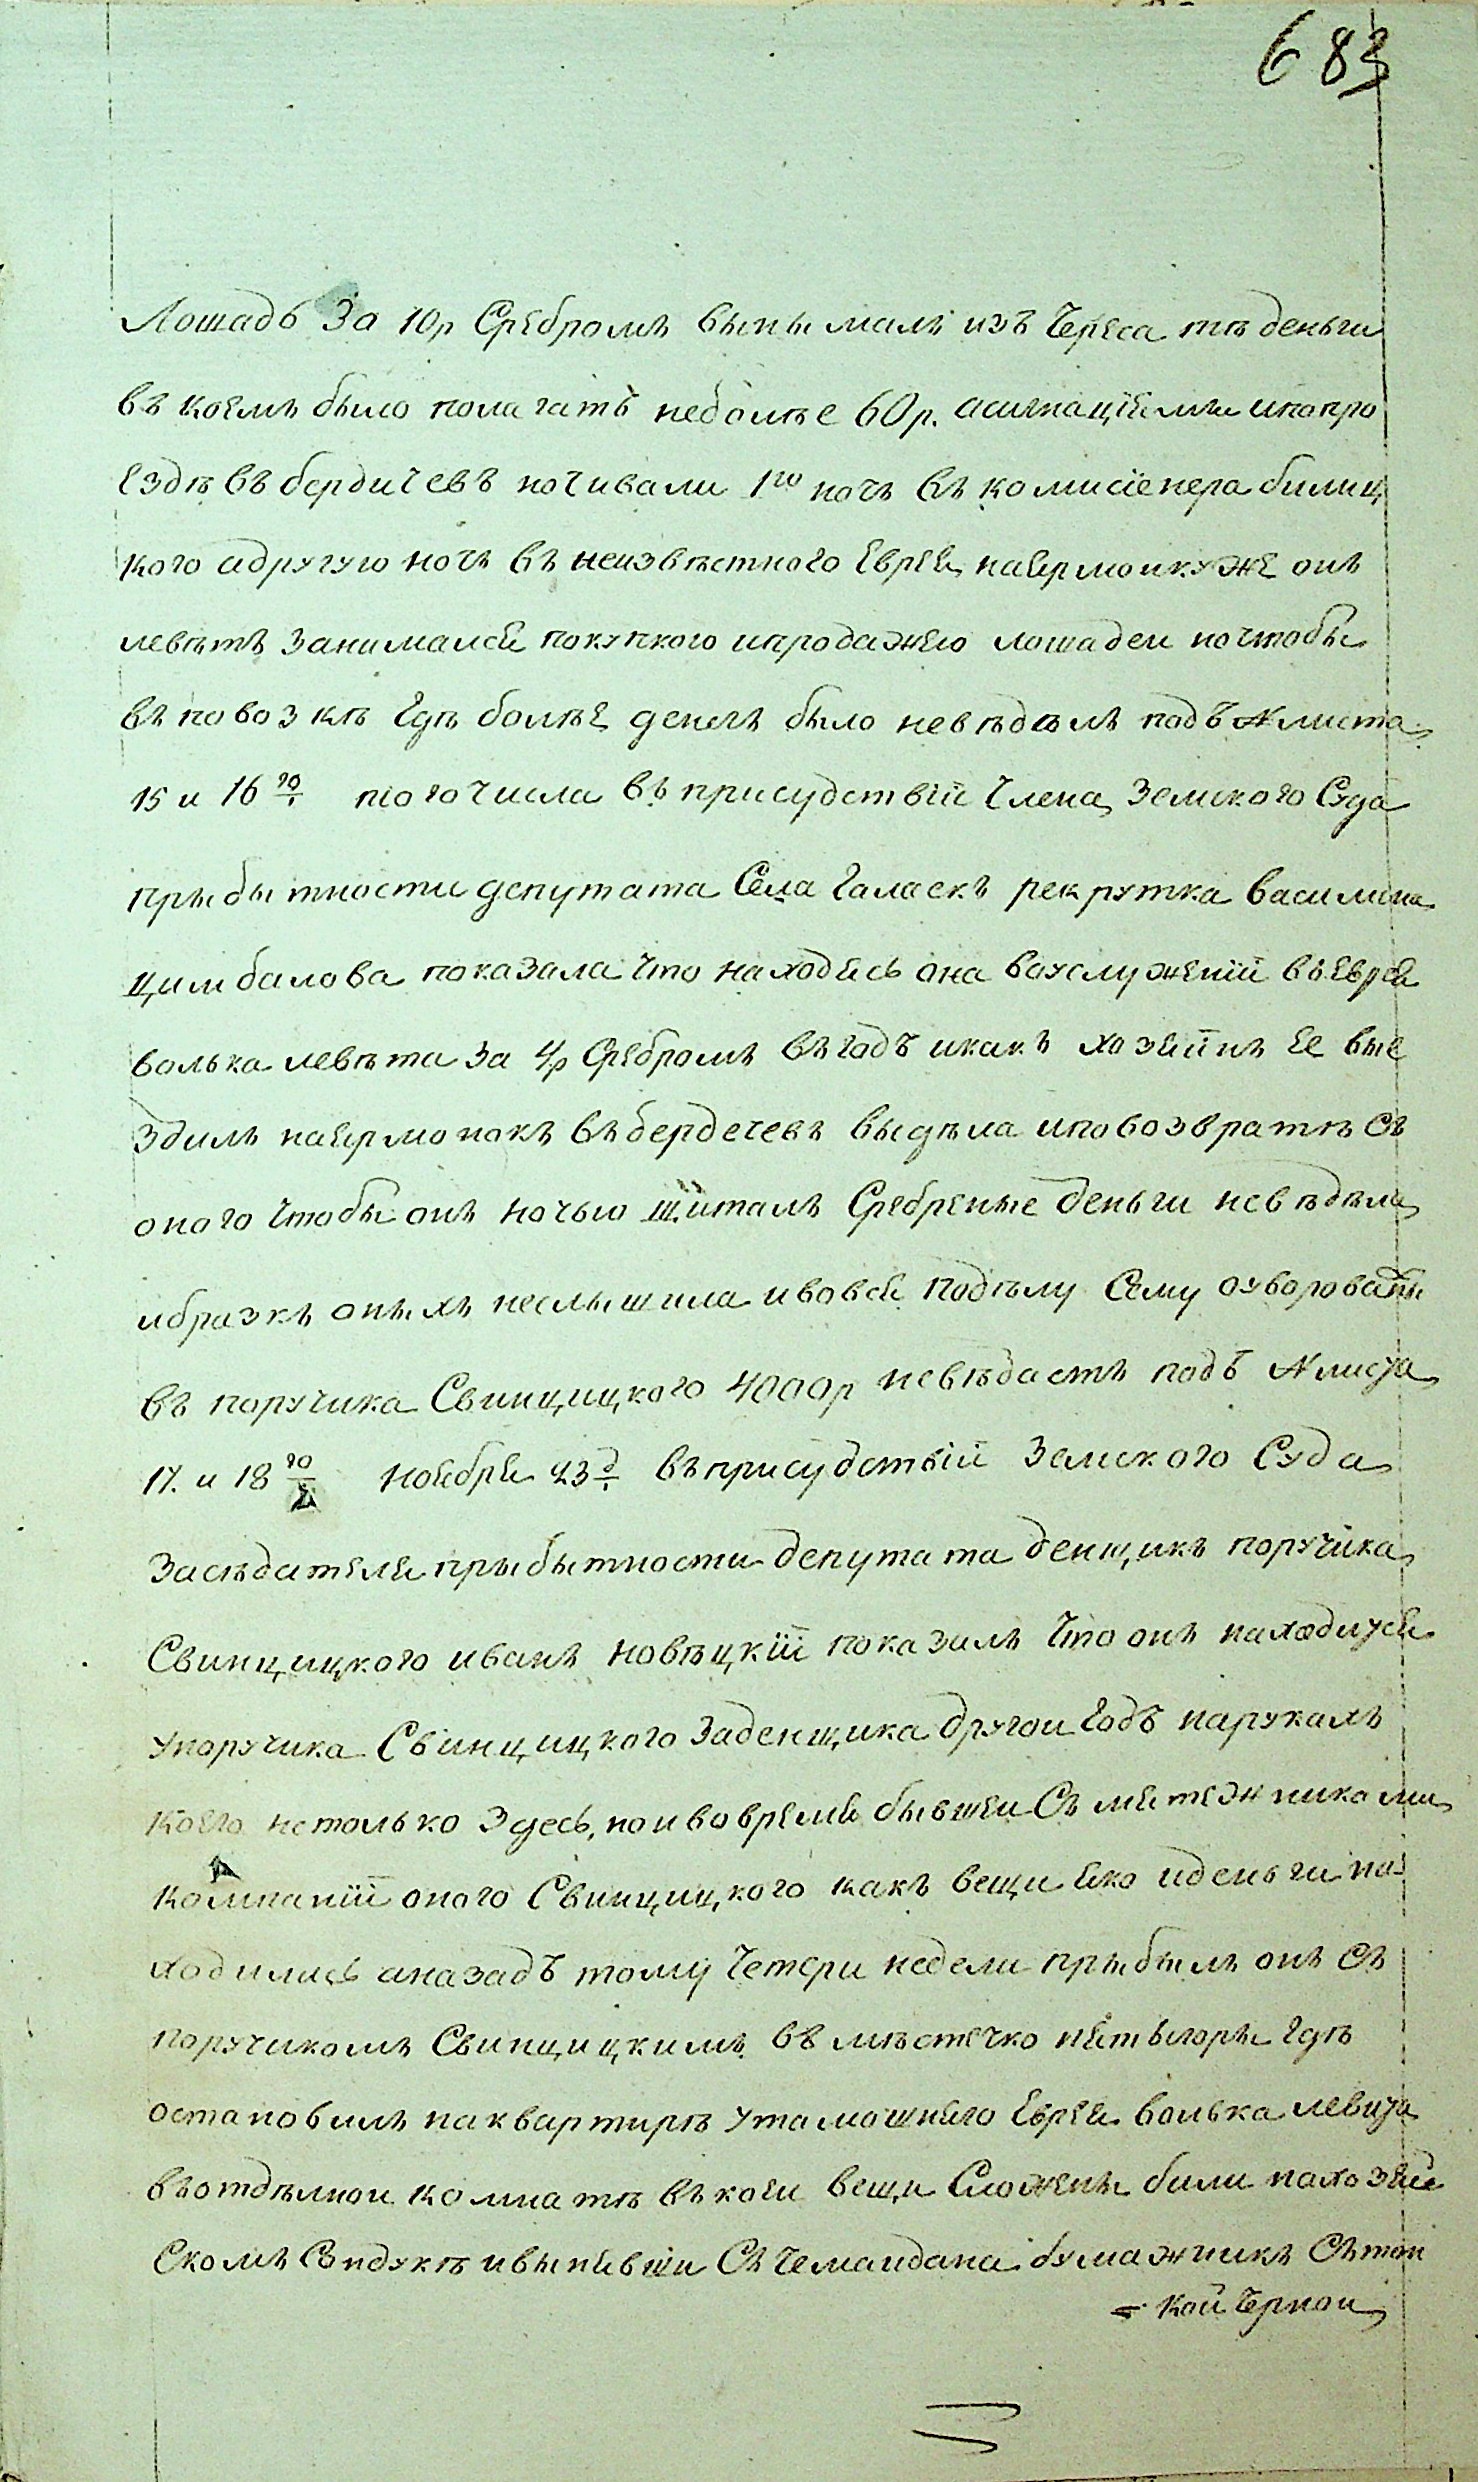 683
Лошадь За 10р Сребромъ вынымалъ изъ Череса тѣ деньги
въ коемъ было полагать неболѣе 60р. асигнаціями ипопро
ездѣ въ бердичевъ ночивали 1ю ночъ въ комисіенера билиц
кого адругую ночъ въ неизвѣстного Еврея наярмонку же онъ
левѣтъ занимался покупкою ипродажею лошадеи ночтобы
въ повозкѣ Где болѣе денегъ было невѣдѣлъ подъ № листа
15 и 16го того числа въ присудствіи Члена Земского Суда
прыбытности депутата Села Галаекъ рекрутка василина
цимбалова показала Что находясь она воуслуженіи въ Еврея
волька левѣта За 4р Сребромъ въ годъ икакъ хозяинъ Ее вые
здилъ наярмонокъ въ бердечевъ выдѣла иповозвратѣ съ
оного Чтобы онъ ночью щиталъ Сребреные деньги невѣдѣла
ибразкъ оныхъ неслышила ивовся подѣлу Сему оуворованы
въ поручика Свинцицкого 4000р невѣдаетъ подъ № листа
17. и 18го Ноября 23д въприсудствіи Земского Суда
Засѣдателя прыбытности депутата денщикъ поручика
Свинцицкого иванъ новѣцкій показалъ Что онъ находится
упоручика Свинцицкого Заденщика другои Годъ нарукахъ
коего нетолько здесь, но ивовремя бывшеи Съ мятежниками
компаніи оного Свинцицкого какъ вещи яко иденьги на
ходились аназадъ тому Четери недели прыбылъ онъ съ
поручикомъ Свинцицкимъ въ мѣстечко пятыгоры Гдѣ
остановилъ наквартирѣ утамошняго Еврея волька левита
въотдѣлнои комнатѣ въ коеи вещи Сложены били нахозяй
Скомъ Сндукѣ ивынявши Съ Чемандана бумажникъ Сътон
кой Чернои